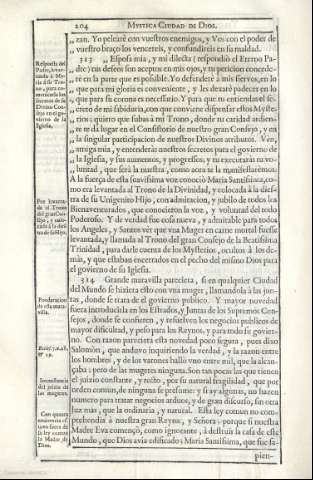 204 MYSTICA CIUDAD DE DIOS.
„ zan. Yo pelearè con vuestros enemigos, y Vos con el poder de
„ vuestro braço los vencereis, y confundireis en su maldad.
„ 313 Esposa mia, y mi dilecta (respondiò el Eterno Pa-
„ dre) tus deseos son aceptos en mis ojos, y tu peticion concede-
„ rè en la parte que es posible. Yo defenderè à mis siervos, en lo
„ que para mi gloria es conveniente, y les dexarè padecer en lo
„ que para su corona es necessario. Y para que tu entiendas el se-
„ creto de mi sabiduria, con que conviene dispensar estos Myste-
„ rios; quiero que subas à mi Trono, donde tu caridad ardien-
„ te te dà lugar en el Consistorio de nuestro gran Consejo, y en
„ la singular participacion de nuestros Divinos atributos. Ven,
„ amiga mia, y entenderàs nuestros secretos para el govierno de
„ la Iglesia, y sus aumentos, y progressos; y tu executaràs tu vo-
„ luntad, que serà la nuestra, como aora te la manifestarèmos.
A la fuerça de esta suavissima voz conociò Maria Santissima, co-
mo era levantada al Trono de la Divinidad, y colocada à la dies-
tra de su Unigenito Hijo, con admiracion, y jubilo de todos los
Bienaventurados, que conocieron la voz, y voluntad del todo
Poderoso. Y de verdad fue cosa nueva, y admirable para todos
los Angeles, y Santos vèr que una Muger en carne mortal fuesse
levantada, y llamada al Trono del gran Consejo de la Beatissima
Trinidad, para darle cuenta de los Mysterios, ocultos à los de-
màs, y que estaban encerrados en el pecho del mismo Dios para
el govierno de su Iglesia.
314 Grande maravilla pareciera, si en qualquier Ciudad
del Mundo se hiziera esto con una muger, llamandola à las jun-
tas, donde se trata de el govierno publico. Y mayor novedad
fuera introducirla en los Estrados, y Juntas de los Supremos Con-
sejos, donde se confieren, y resuelven los negocios publicos de
mayor dificultad, y peso para los Reynos, y para todo su govier-
no. Con razon pareciera esta novedad poco segura, pues dixo
Salomòn, que anduvo inquiriendo la verdad, y la razon entre
los hombres, y de los varones hallò uno entre mil, que la alcan-
çaba; pero de las mugeres ninguna. Son tan pocas las que tienen
el juizio constante, y recto, por su natural fragilidad, que por
orden comun, de ninguna se presume: y si ay algunas, no hazen
numero para tratar negocios arduos, y de gran discurso, sin otra
luz mas, que la ordinaria, y natural. Esta ley comun no com-
prehendia à nuestra gran Reyna, y Señora; porque si nuestra
Madre Eva començò, como ignorante, à destruir la casa de este
Mundo, que Dios avia edificado; Maria Santissima, que fue sa-
pien-
Por levanta-
da al Trono
Ponderacion
de esta mara-
villa.
Inconstancia
del juizio de
las mugeres.